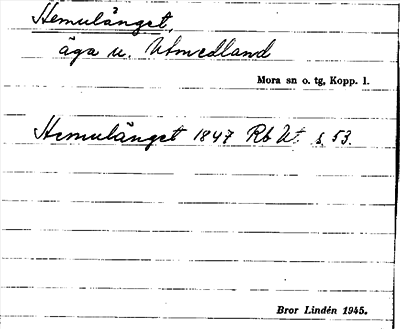 Hemulänget,
äga u. Utmedland
Mora sn o. tg, Kopp. l.
Hemulänget 1847 Rb Ut. s. 53.
Bror Lindén 1945.